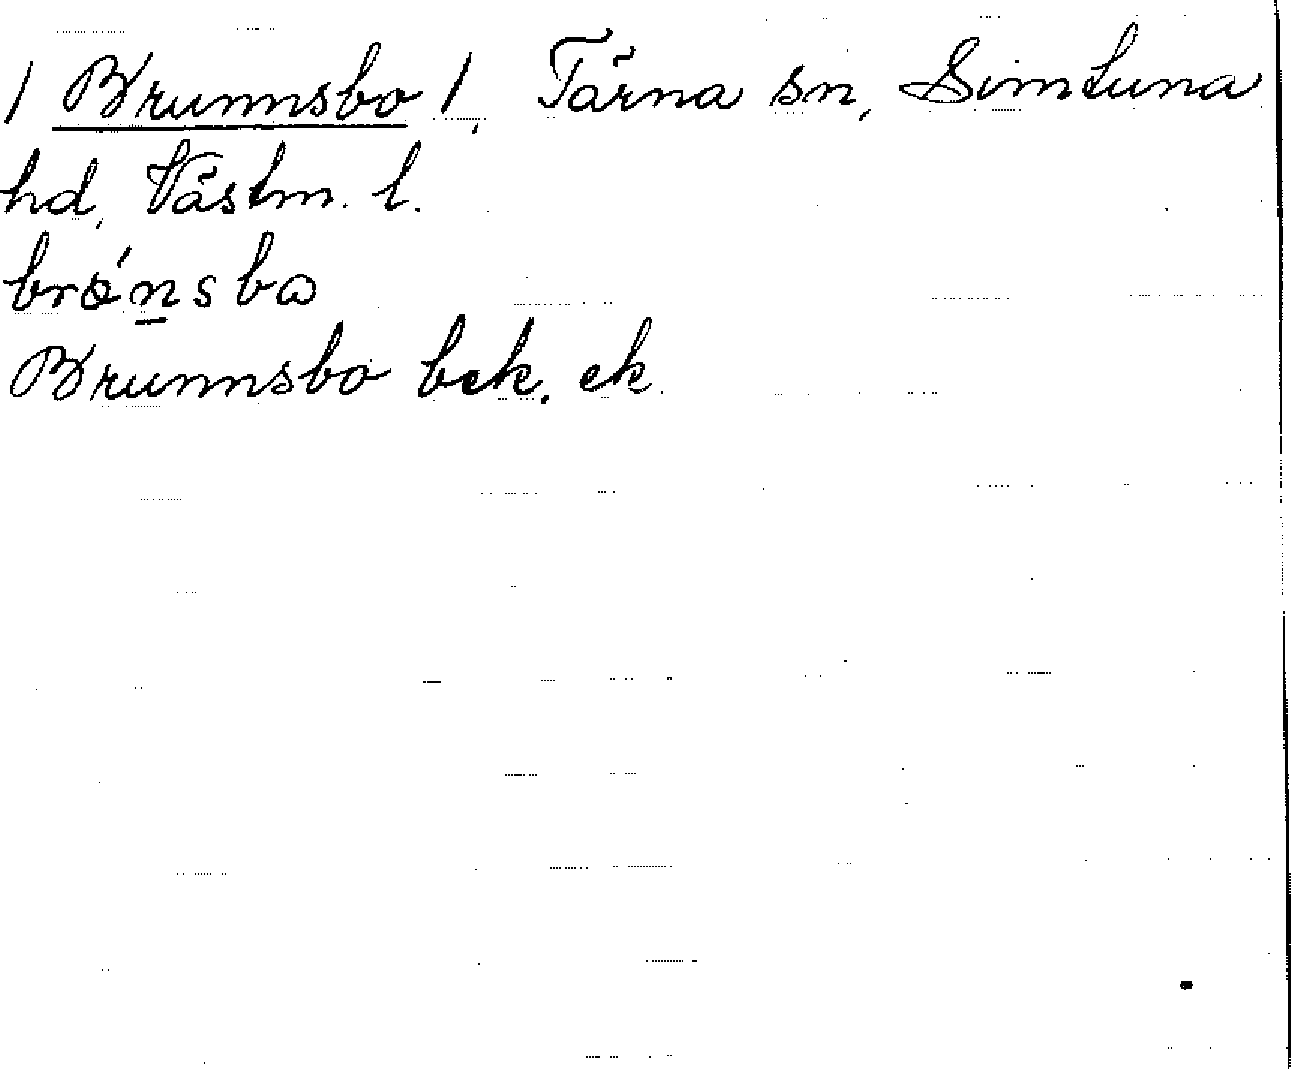 / Brunnsbo /, Tärna sn, Simtuna
hd, Västm. l.
brǿnsbω
Brunnsbo bek. ek.